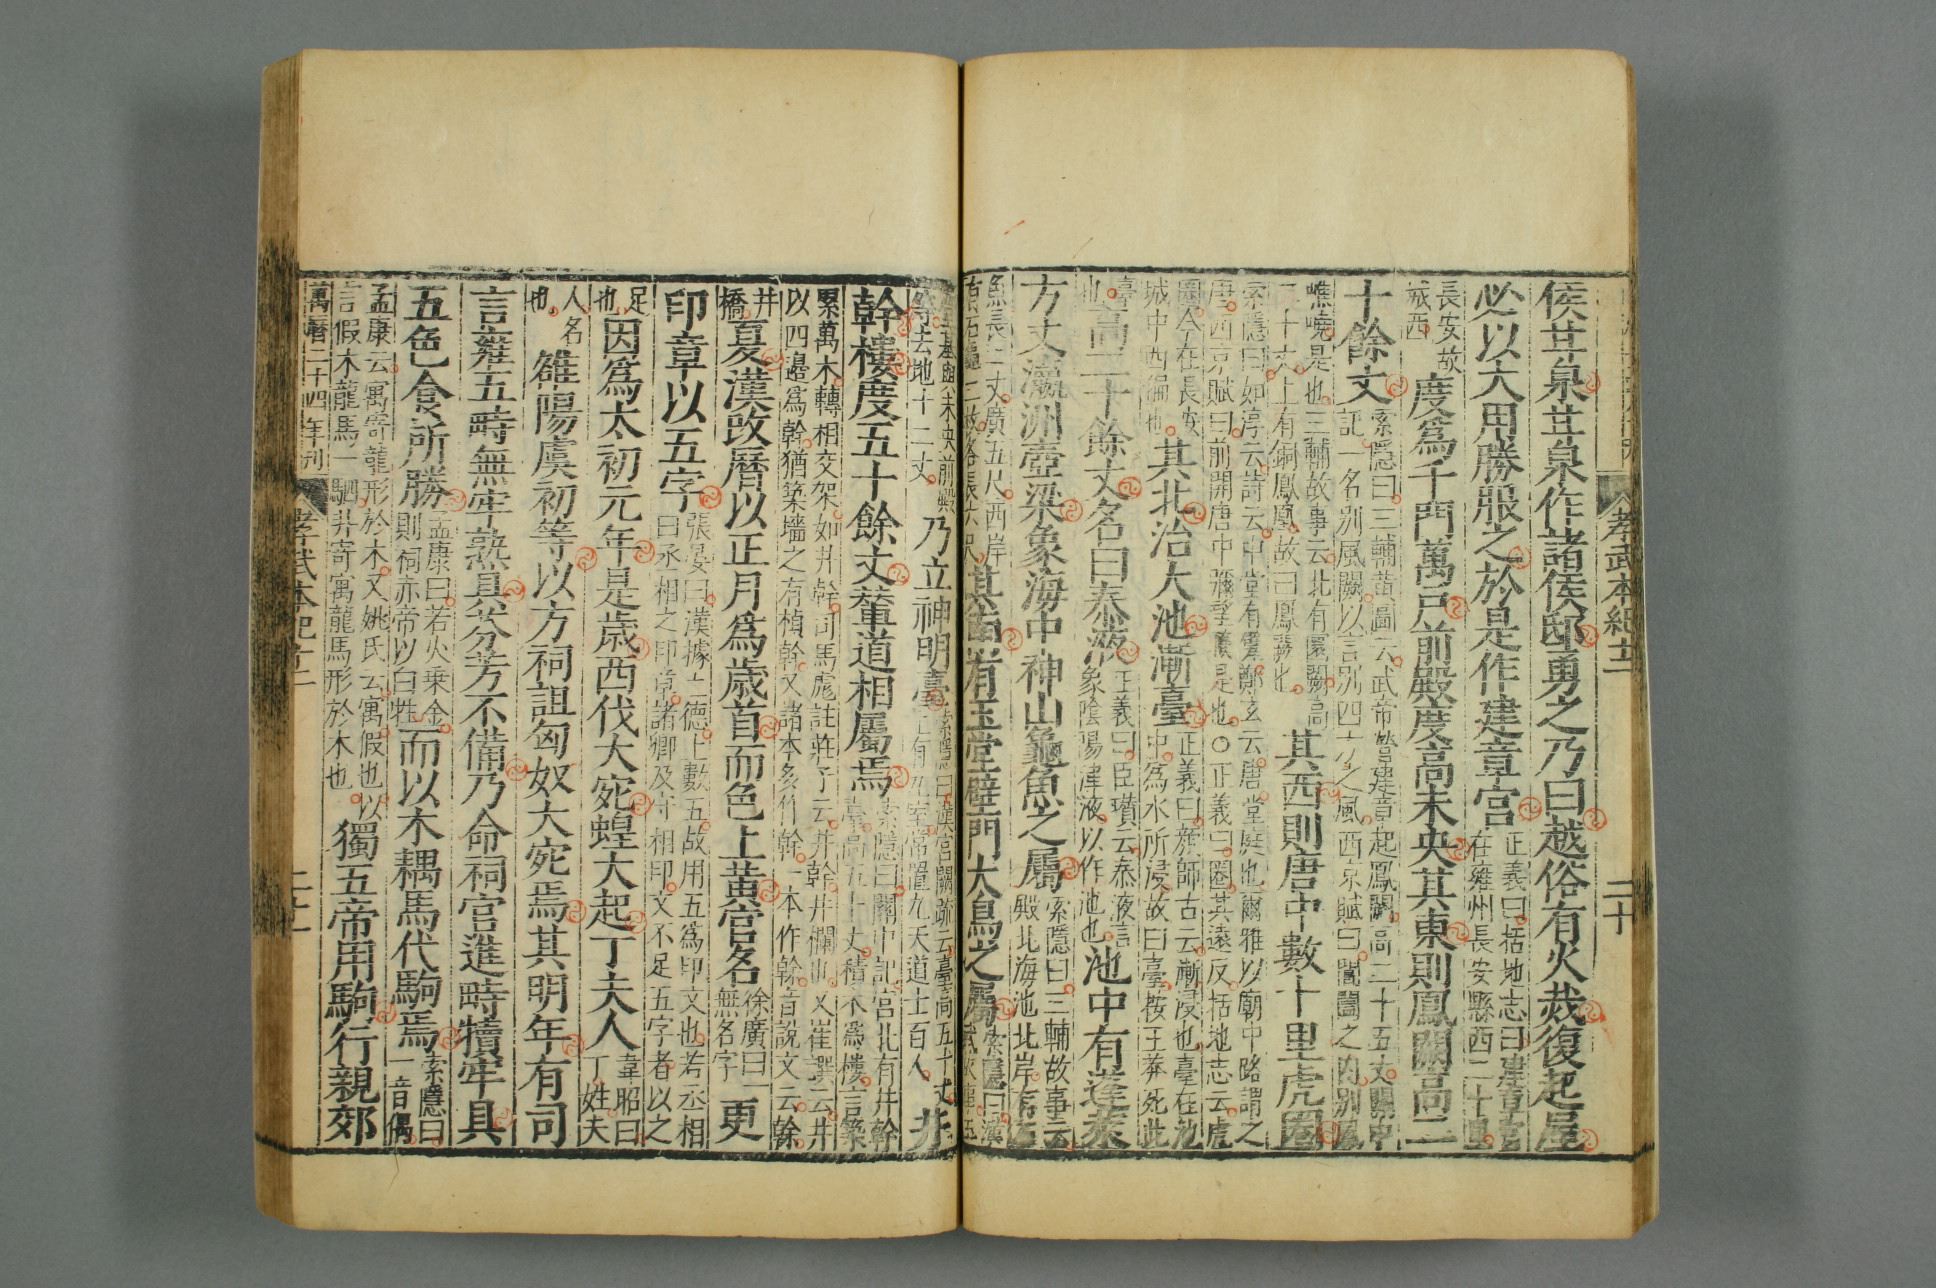 孝武本紀十二
二十
侯甘泉甘泉作諸侯邸勇之乃曰越俗有火烖復起屋
必以大用勝服之於是作建章宮正義曰括地志曰建章宮在雍州長安縣西二十里
長安故城西度爲千門萬戶前殿度高未央其東則鳳闕高二
十餘丈索隱曰三輔黃圖云武帝營建章起鳳闕高二十五丈關中記一名別風闕以言別四方之風西京賦曰閶闔之內別風
嶕嶢是也三輔故事云北有圜闕高二十丈上有銅鳳凰故曰鳳闕也其西則唐中數十里虎圈
索隱曰如淳云詩云中堂有甓鄭玄云唐堂庭也爾雅以廟中路謂之唐西京賦曰前開唐中彌望廣是也○正義曰圈其遠反括地志云虎
圈今在長安城中西偏也其北治大池漸臺正義曰顏師古云漸浸也臺在池中爲水所浸故曰臺按王莽死此
臺也高二十餘丈名曰泰液正義曰臣瓚云泰液言象陰陽津液以作池也池中有蓬萊
方丈瀛洲壺梁象海中神山龜魚之屬索隱曰三輔故事云殿北海池北岸有石
魚長二丈廣五尺西岸有石龜二枚各長六尺其南有玉堂璧門大鳥之屬索隱曰漢武故事玉
堂基與未央前殿等去地十二丈乃立神明臺索隱曰漢宮闕疏云臺高五十丈上有九室常置九天道士百人井
幹樓度五十餘丈輦道相屬焉索隱曰關中記宮北有井幹臺高五十丈積木爲樓言築
累萬木轉相交架如井幹司馬彪註莊子云井幹井欄也又崔譔云井以四邊爲幹猶築墻之有楨幹又諸本多作幹一本作榦音說文云榦
井橋夏漢改曆以正月爲歲首而色上黃官名徐廣曰一無名字更
印章以五字張晏曰漢據土德土數五故用五爲印文也若丞相曰丞相之印章諸卿及守相印文不足五字者以之
足也因爲太初元年是歲西伐大宛蝗大起丁夫人韋昭曰丁姓夫
人名也雒陽虞初等以方祠詛匈奴大宛焉其明年有司
言雍五畤無牢熟具芬芳不備乃命祠官進畤犢牢具
五色食所勝孟康曰若火乗金則祠赤帝以白牲而以木耦馬代駒焉索隱曰一音偶
孟康云寓寄龍形於木又姚氏云寓假也以言假木龍馬一駟非寄寓龍馬形於木也獨五帝用駒行親郊
萬曆二十四年刊
孝武本紀十二
二十一